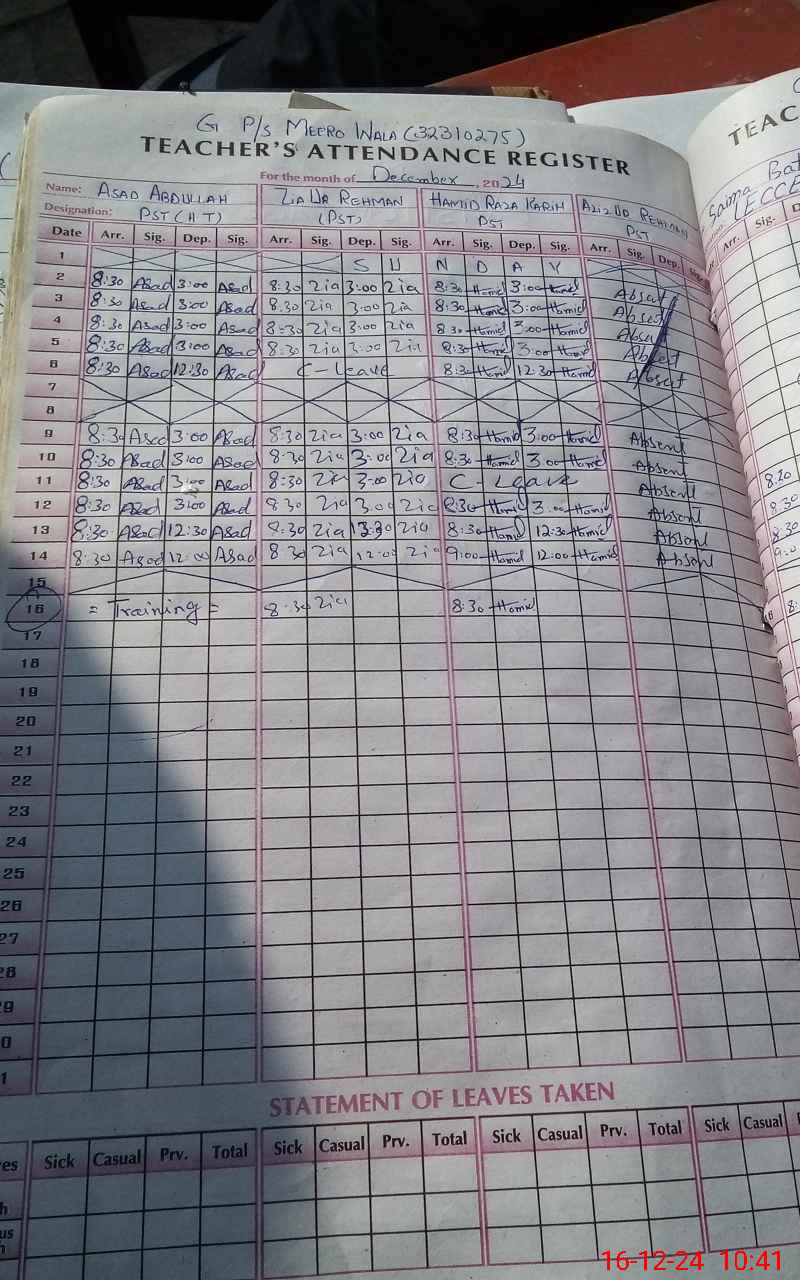 G P/S MEERO WALA (32310275)
TEACHER'S ATTENDANCE REGISTER
For the month of December, 2024
Name: ASAD ABDULLAH ZIA UR REHMAN HAMID RAZA KARIM AZIZ UD REHMAN Saima
Designation: PST (HT) (PST) PST PST (ECCE
Date Arr. Sig. Dep. Sig. Arr. Sig. Dep. Sig. Arr. Sig. Dep. Sig. Arr. Sig. Dep. Sig. Arr. Sig.
1 S U N D A Y
2 8:30 Asad 3:00 Asad 8:30 Zia 3:00 Zia 8:30 Hamid 3:00 Hamid Absent
3 8:30 Asad 3:00 Asad 8:30 Zia 3:00 Zia 8:30 Hamid 3:00 Hamid Absent
4 8:30 Asad 3:00 Asad 8:30 Zia 3:00 Zia 8:30 Hamid 3:00 Hamid Absent
5 8:30 Asad 3:00 Asad 8:30 Zia 3:00 Zia 8:30 Hamid 3:00 Hamid Absent
6 8:30 Asad 12:30 Asad C-Leave 8:30 Hamid 12:30 Hamid Absent
7
8
9 8:30 Asad 3:00 Asad 8:30 Zia 3:00 Zia 8:30 Hamid 3:00 Hamid Absent
10 8:30 Asad 3:00 Asad 8:30 Zia 3:00 Zia 8:30 Hamid 3:00 Hamid Absent
11 8:30 Asad 3:00 Asad 8:30 Zia 3:00 Zia C-Leave Absent
12 8:30 Asad 3:00 Asad 8:30 Zia 3:00 Zia 8:30 Hamid 3:00 Hamid Absent
13 8:30 Asad 12:30 Asad 8:30 Zia 12:30 Zia 8:30 Hamid 12:30 Hamid Absent
14 8:30 Asad 12:00 Asad 8:30 Zia 12:00 Zia 9:00 Hamid 12:00 Hamid Absent
15
16 = Training = 8:30 Zia 8:30 Hamid
17
18
19
20
21
22
23
24
25
26
27
28
29
0
1
STATEMENT OF LEAVES TAKEN
Sick Casual Prv. Total Sick Casual Prv. Total Sick Casual Prv. Total Sick Casual
16-12-24 10:41